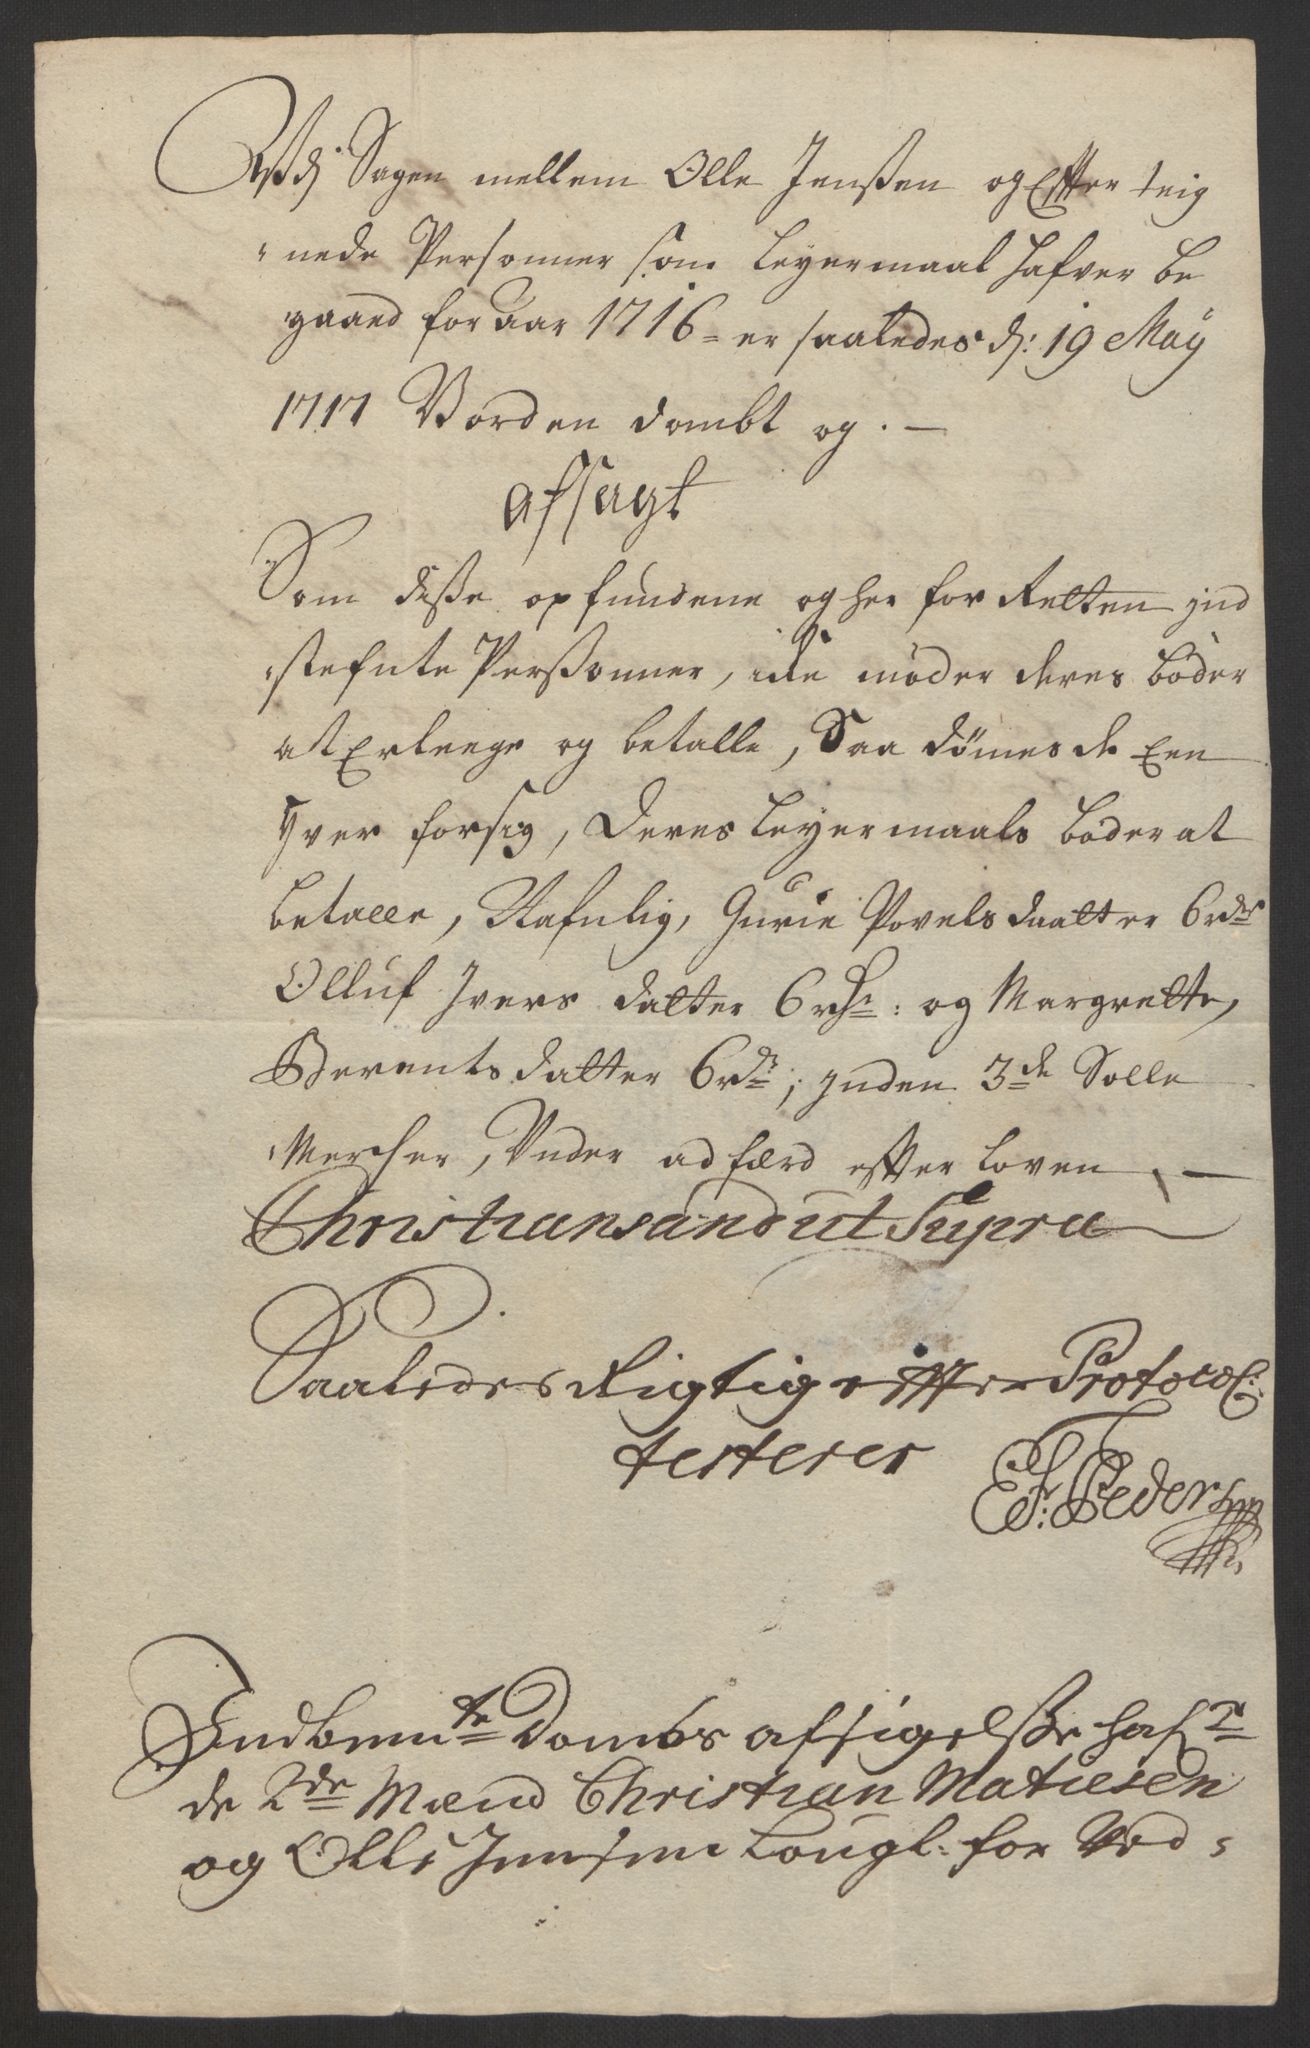 Udj Sagen mellem Olle Jenßen og Efter teig
nede Personner som Leyermaal hafver be
gaaed for aar 1716 = er saaledes d: 19 May
1717 Vorden dømbt og . —
afsagt
Som diße opfundene og her for Retten jnd
stefnte Perßonner, icke møder deres bøder
at Erlegge og betalle, Saa dømes de Een
hver forsig, Deres Leyermaals bøder at
betalle, Nafnlig, Gurie Povels daatter 6 rdr
Olluf Ivers datter 6 rdr: og Margrette
Berents datter 6 rdr; jnden 3de Solle
Mercher, Under adfærd efter Loven —
Christiansand ut Supra
Saaledes Rigtig efter Protocol:
testerer
E: F: Pedersen
Indbemte Dombs afsigelße hafr
de 2de Mænd Christian Matiesen
og Olle Jensen Lougl: for Ved=